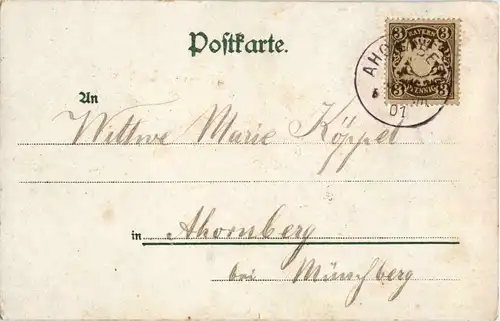 Postkarte.
3 BAYERN 3
3 PFENNIG 3
AHO
01
An
Wittwe Marie Köppel
in Ahornberg
bei Münchberg